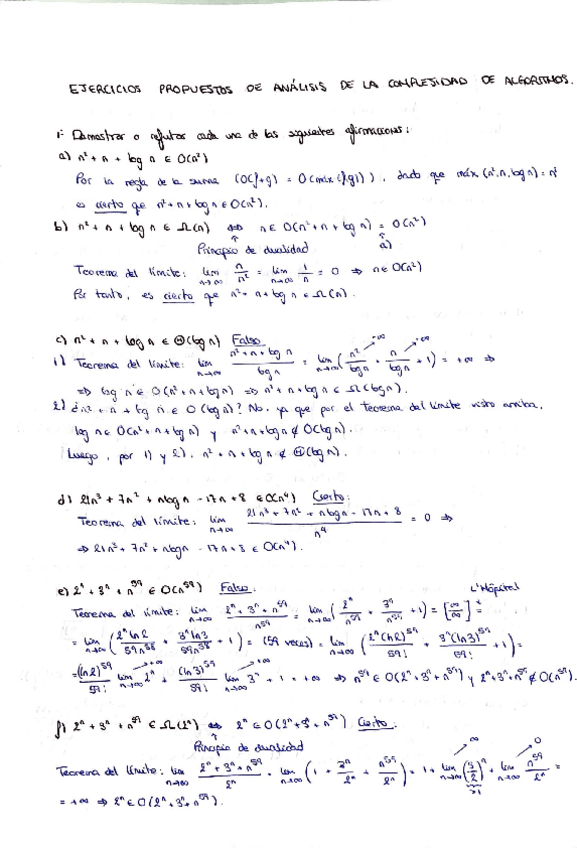 EJERCICIOS PROPUESTOS DE ANÁLISIS DE LA COMPLEJIDAD DE ALGORITMOS.
1- Demostrar o refutar cada una de las siguientes afirmaciones:
a) n² + n + log n ∈ O(n²)
Por la regla de la suma (O(f+g) = O(máx(f,g))), dado que máx(n², n, log n) = n²
es cierto que n² + n + log n ∈ O(n²).
b) n² + n + log n ∈ Ω(n) ⟺ n ∈ O(n² + n + log n) = O(n²)
Principio de dualidad a)
Teorema del límite: lim n→∞ n/n² = lim n→∞ 1/n = 0 ⇒ n ∈ O(n²)
Por tanto, es cierto que n² + n + log n ∈ Ω(n).
c) n² + n + log n ∈ Θ(log n) Falso.
1) Teorema del límite: lim n→∞ (n² + n + log n)/log n = lim n→∞ (n²/log n + n/log n + 1) = +∞ ⇒
⇒ log n ∈ O(n² + n + log n) ⇒ n² + n + log n ∈ Ω(log n).
2) ¿n² + n + log n ∈ O(log n)? No, ya que por el Teorema del límite visto arriba,
log n ∈ O(n² + n + log n) y n² + n + log n ∉ O(log n).
Luego, por 1) y 2), n² + n + log n ∉ Θ(log n).
d) 21n³ + 7n² + nlog n - 17n + 8 ∈ O(n⁴) Cierto:
Teorema del límite: lim n→∞ (21n³ + 7n² + nlog n - 17n + 8)/n⁴ = 0 ⇒
⇒ 21n³ + 7n² + nlog n - 17n + 8 ∈ O(n⁴).
e) 2ⁿ + 3ⁿ + n⁵⁹ ∈ O(n⁵⁹) Falso: L'Hôpital
Teorema del límite: lim n→∞ (2ⁿ + 3ⁿ + n⁵⁹)/n⁵⁹ = lim n→∞ (2ⁿ/n⁵⁹ + 3ⁿ/n⁵⁹ + 1) = [∞/∞] =
= lim n→∞ (2ⁿ ln 2/59n⁵⁸ + 3ⁿ ln 3/59n⁵⁸ + 1) = (59 veces) = lim n→∞ (2ⁿ(ln 2)⁵⁹/59! + 3ⁿ(ln 3)⁵⁹/59! + 1) =
= (ln 2)⁵⁹/59! lim n→∞ 2ⁿ + (ln 3)⁵⁹/59! lim n→∞ 3ⁿ + 1 = +∞ ⇒ n⁵⁹ ∈ O(2ⁿ + 3ⁿ + n⁵⁹) y 2ⁿ + 3ⁿ + n⁵⁹ ∉ O(n⁵⁹).
f) 2ⁿ + 3ⁿ + n⁵⁹ ∈ Ω(2ⁿ) ⟺ 2ⁿ ∈ O(2ⁿ + 3ⁿ + n⁵⁹) Cierto:
Principio de dualidad
Teorema del límite: lim n→∞ (2ⁿ + 3ⁿ + n⁵⁹)/2ⁿ = lim n→∞ (1 + 3ⁿ/2ⁿ + n⁵⁹/2ⁿ) = 1 + lim n→∞ (3/2)ⁿ + lim n→∞ n⁵⁹/2ⁿ =
= +∞ ⇒ 2ⁿ ∈ O(2ⁿ + 3ⁿ + n⁵⁹).